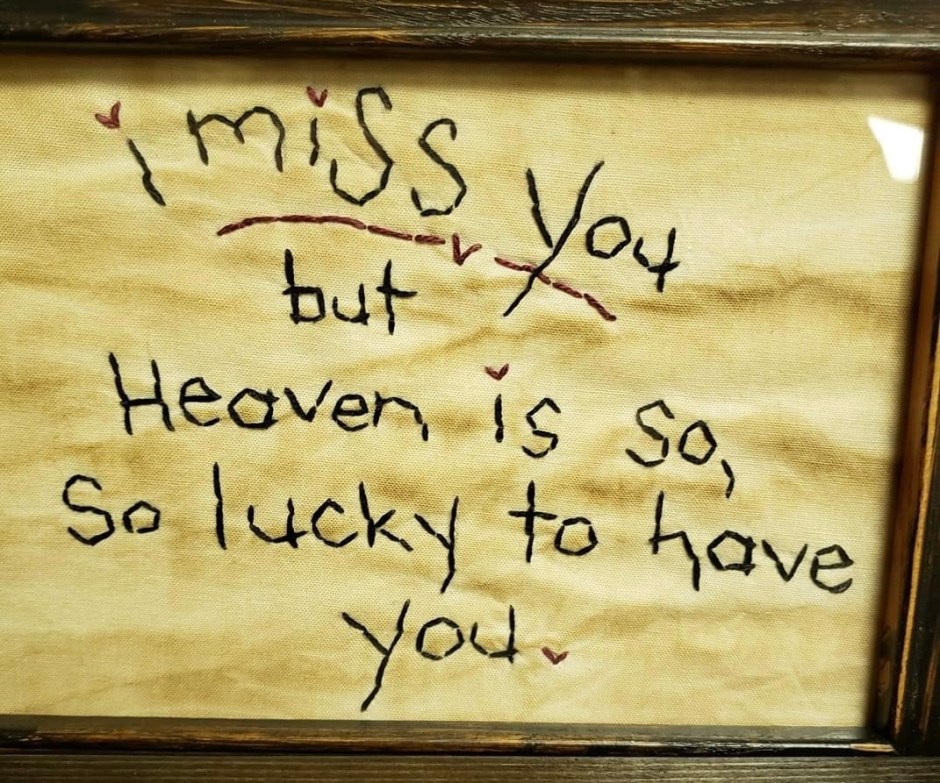 i miss you
but
Heaven is so,
So lucky to have
you.